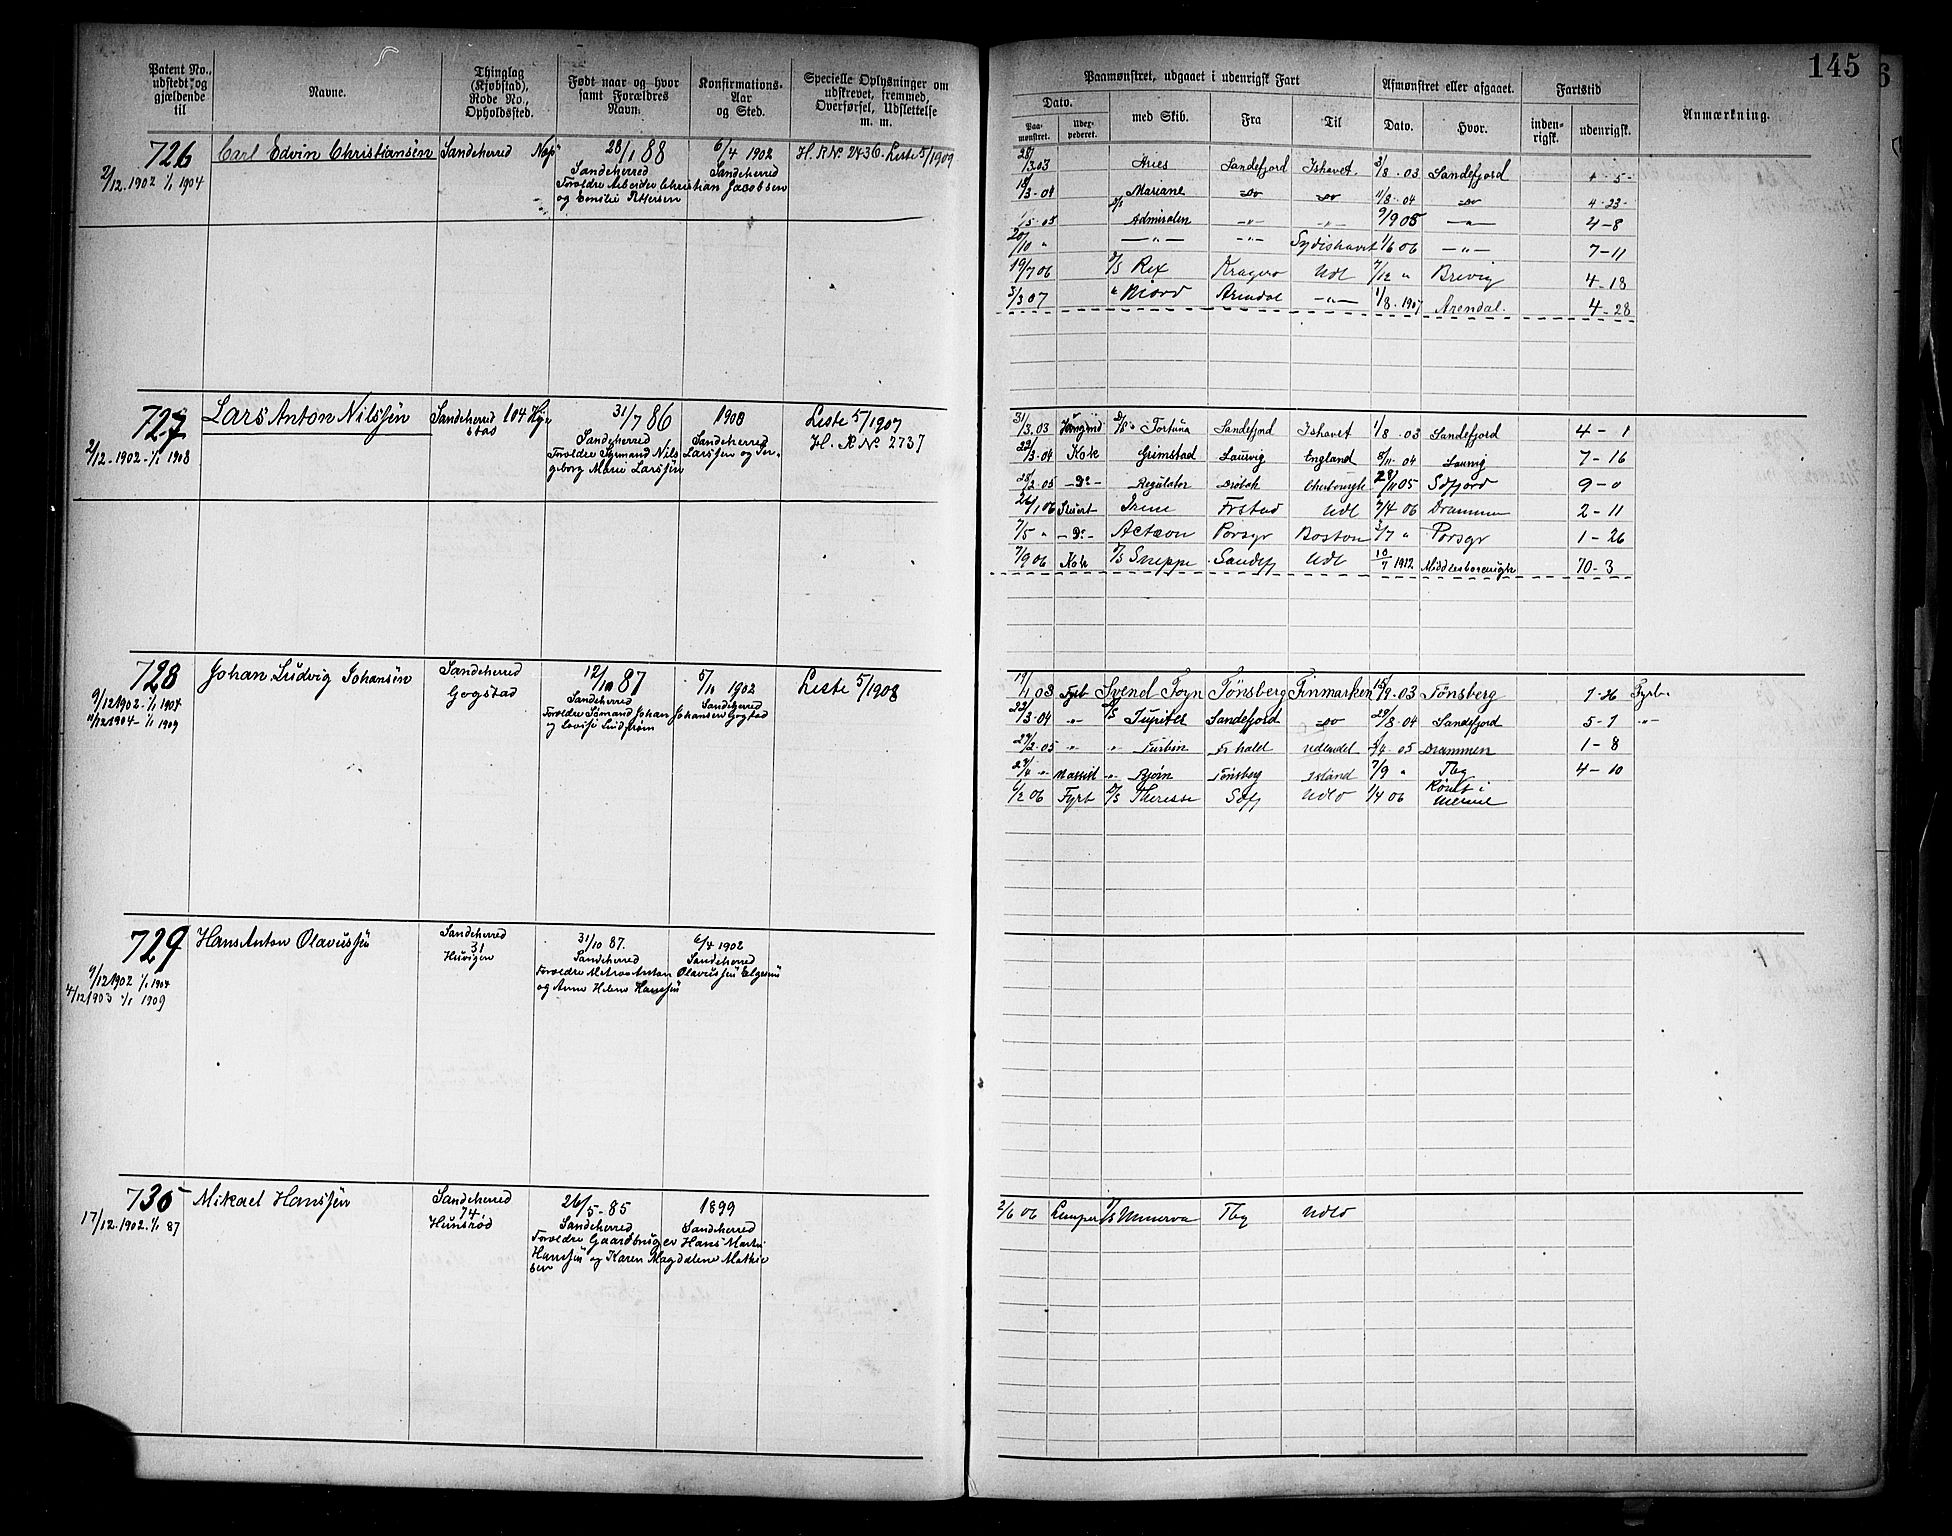 145
Patent No., udstedt og gjældende til
Navne.
Thinglag (Kjøbstad), Rode No., Opholdssted.
Født naar og hvor samt Forældres Navn.
Konfirmations-Aar og Sted.
Specielle Oplysninger om udskrevet, fremmed, Overførsel, Udslettelse m. m.
Paamønstret, udgaaet i udenrigsk Fart
Afmønstret eller afgaaet.
Fartstid
Anmærkning.
Dato.
Paa-mønstret.
Uder-pederet.
med Skib.
Fra
Til
Dato.
Hvor.
inden-rigsk.
udenrigsk.
726 Carl Edvin Christiansen Sandeherred 28/1 88 6/4 1902 H. R No. 2436. Liste 5/1909
2/12. 1902 1/1 1904 Sandeherred Sandeherred
Forældre Arbeider Christian Jacobsen
og Emilie Pettersen
28/3.03 Aries Sandefjord Ishavet. 3/8.03 Sandefjord 4 5-
18/3-04 Mariane -do- -do- 4/8.04 -do- 4-23-
1/5.05 D/S Admiralen -"- -"- 9/9 05 -"- 4-8
20/10 " -"- -"- Sydishavet 1/6 06 -"- 7-11
19/7 06 D/S Rex Kragerø Udl 7/12 " Brevig 4-18
3/3 07 " Njord Arendal -"- 1/8.1907 Arendal. 4-28
727 Lars Anton Nilssen Sandeherred 104 31/7 86 1900 Liste 5/1907
2/12.1902-1/1 1908 Sandeherred Sandeherred H. R No 2737
Forældre Sømand Nils Larssen og In-
geborg Marie Larssen
31/3.03 Fortuna Sandefjord Ishavet 1/8.03 Sandefjord 4-1
22/3.04 Kok Grimstad Laurvig England 8/11.04 Laurvig 7-16
28/2.05 -Do- Regulator Drøbak 28/11 05 Sdfjord 9-0
26/1 06 Irene Frstad Udl 7/4 06 Drammen 2-11
7/5 " -Do- Actæon Porsgr Boston 3/7 " Porsgr 1-26
7/9 06 Kok D/S Sneppe Sandefj Udl 10/7 1912 70-3
728 Johan Ludvig Johansen Sandeherred 12/10 87 5/11 1902 Liste 5/1908
9/12 1902-1/1 1904 Gogstad Sandeherred Sandeherred
11/12 1904-1/1 1909 Forældre Sømand Johan Johansen Gogstad
og Lovise Lindstrøm
19/1 03 Fyrb Svend Foyn Tønsberg Finmarken 15/9.03 Tønsberg 7-26 Fyrb.
22/3.04 -"- D/S Jupiter Sandefjord -do- 29/8.04 Sandefjord 5-7 -"-
27/2.05 -"- " Turbin Frhald udlandet 5/4.05 Drammen 1-8
27/4 " " Bjørn Tønsberg Island 7/9 " Tbg 4-10
6/2 06 Fyrb D/S Therese Sdfj Udld 1/4 06 Rømt i
729 Hans Anton Olavussen Sandeherred 31/10 87. 6/4 1902
9/12 1902 1/1 1904 31 Sandeherred Sandeherred
4/12 1903 1/1 1909 Forældre Matros Anton Olavussen
og Anne Helene Hanssen
730 Mikael Hanssen Sandeherred 26/5-85 1899
17/12.1902.1/1 87 74 Sandeherred Sandeherred
Hunsrød
Forældre Gaardbruger Hans Martin
Hanssen og Karen Magdalene Mathie
sen
2/6 06 Lemper D/S Minerva Tbg Udld